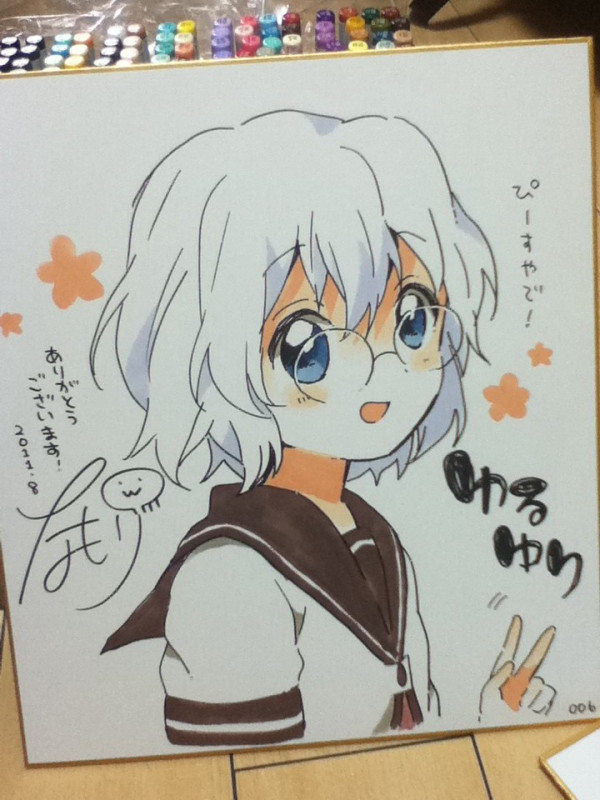 ぴーすやで!
ありがとう
ございます!
2011.8
なもり
ゆる
ゆり
006